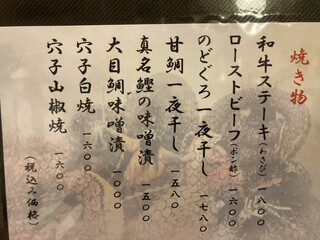 焼き物
和牛ステーキ(わさび) 一八〇〇
ローストビーフ(ポン酢) 一六〇〇
のどぐろ一夜干し 一七八〇
甘鯛一夜干し 一五八〇
真名鰹の味噌漬 一五〇〇
大目鯛味噌漬 一〇〇〇
穴子白焼 一六〇〇
穴子山椒焼 一六〇〇
(税込み価格)